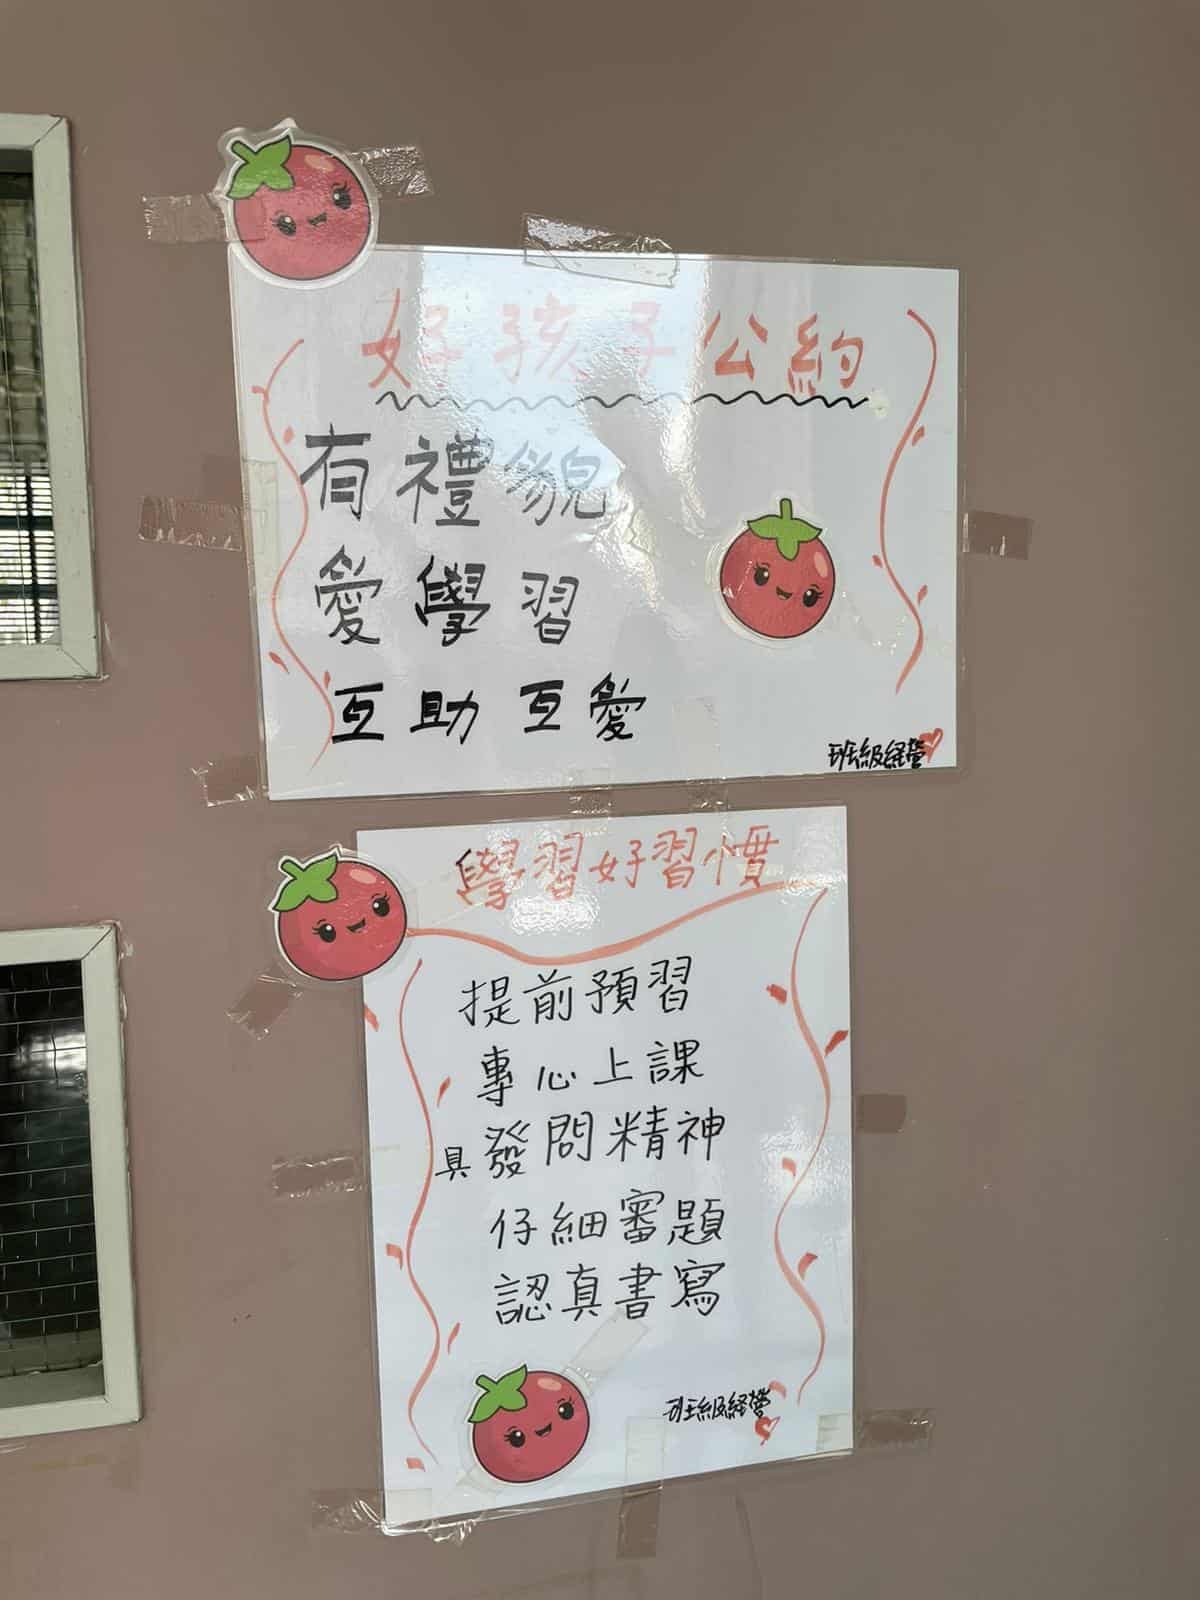 好孩子公約
有禮貌
愛學習
互助互愛
班級経營
學習好習慣
提前預習
專心上課
具發問精神
仔細審題
認真書寫
班級経營